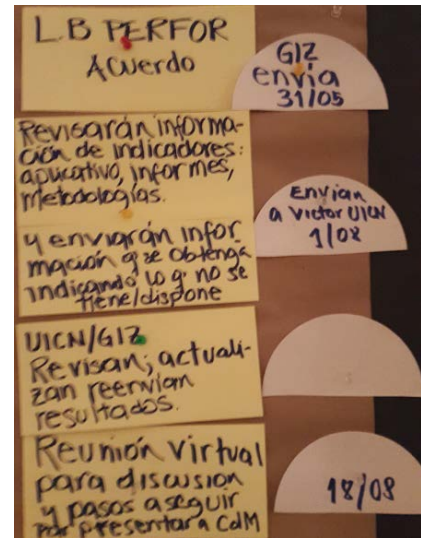 L.B PERFOR
Acuerdo
GIZ
envía
31/05
Revisarán informa-
ción de indicadores:
aplicativo, informes,
metodologías.
Envían
a Victor UICN
1/08
y enviarán infor
mación q se obtenga
indicando lo q no se
tiene/dispone
UICN/GIZ
Revisan, actuali-
zan reenvian
resultados.
Reunión virtual
para discusión
y pasos a seguir
por presentar a CdM
18/08